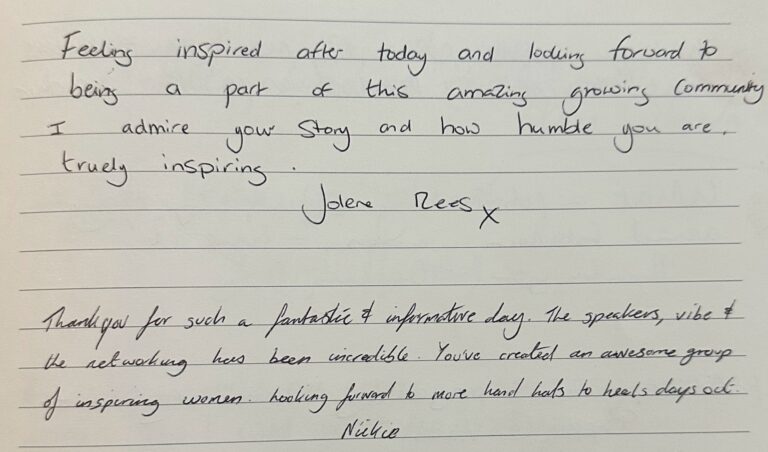 Feeling inspired after today and looking forward to
being a part of this amazing growing Community
I admire your Story and how humble you are,
truely inspiring.
Jolene Rees x
Thankyou for such a fantastic & informative day. The speakers, vibe &
the networking has been incredible. You've created an awesome group
of inspiring women. Looking forward to more hard hats to heels days out.
Nickie